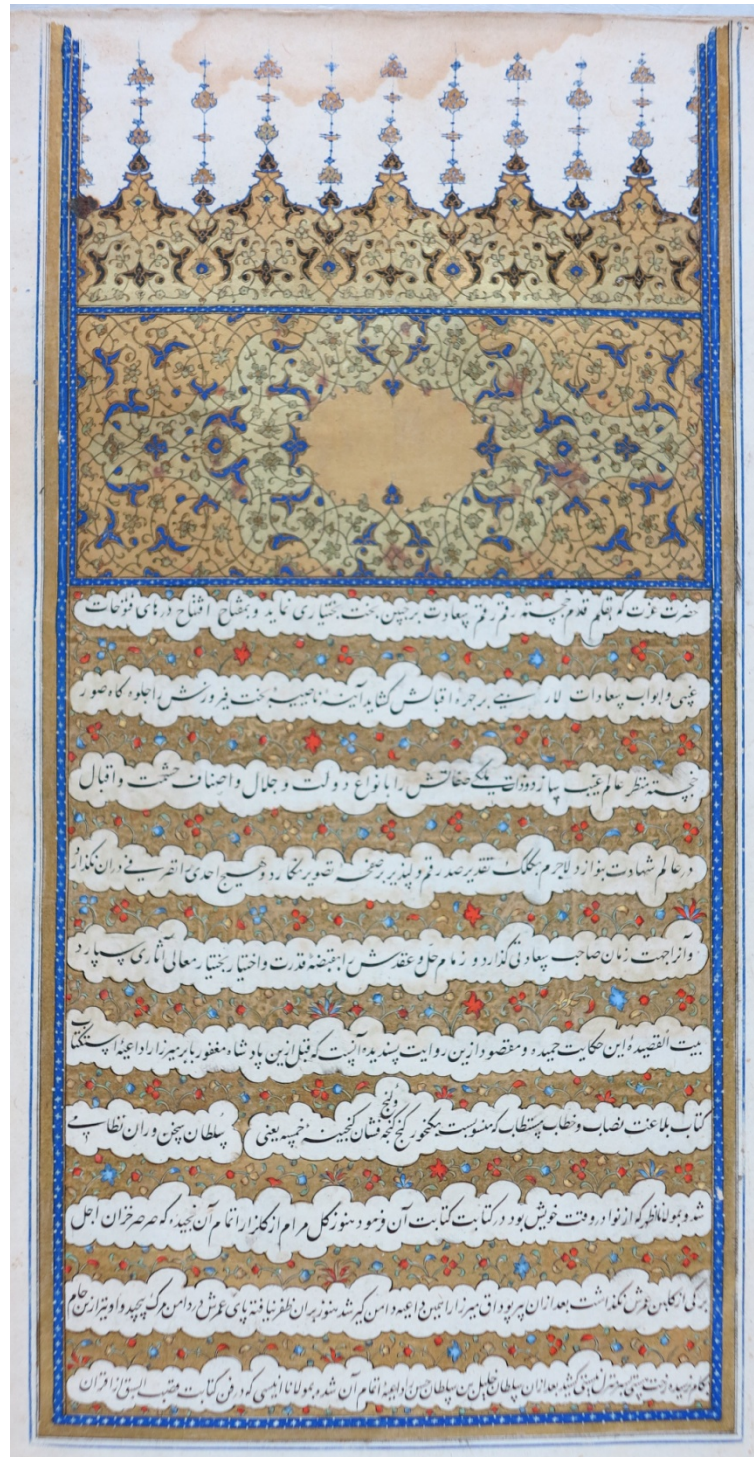 حضرت عزت کو بقلم قدم خجسته رقم رقم سعادت بر جبین بخت بختیاری نماید و بمفتاح افتتاح درهای فتوحات
غیبی و ابواب سعادات لاریبی بر چهرهٔ اقبالش گشاید آینهٔ ناصیهٔ بخت فیروزش را جلوه گاه صور
خجسته منظر عالم غیب سازد و ذات ملکی صفاتش را بانواع دولت و جلال و اصناف حشمت و اقبال
در عالم شهادت بنوازد لاجرم بکلک تقدیر صد رقم دلپذیر بر صفحهٔ تصویر نگارد و هیچ احدی را تصرفی در آن نگذارد
و آنرا جهت زمان صاحب سعادتی گذارد و زمام حل و عقدش را بقبضهٔ قدرت و اختیار بختیار معالی آثاری سپارد
بیت القصیدهٔ این حکایت حمیده و مقصود ازین روایت پسندیده آنست که قبل ازین پادشاه مغفور بابر میرزا را داعیهٔ استکتاب
کتاب بلاغت نصاب و خطاب مستطاب که منسوبست بگنجور گنج و گنجه فشان گنجینهٔ خمسه یعنی سلطان سخن وران نظامی
شد و بمولانا اظهر که از نوادر وقت خویش بود در کتابت کتابت آن فرمود هنوز گل مرام از گلزار اتمام آن نچیده که صرصر خزان اجل
برگی از گلبن عمرش نگذاشت بعد ازان پیر بوداق میرزا را همین داعیه دامن گیر شد هنوز بران ظفر نیافته پای عمرش در دامن مرگ پیچید و او نیز ازین جام
بکام نرسیده رخت هستی بسر منزل نیستی کشید بعد ازان سلطان خلیل بن سلطان حسن را داعیهٔ اتمام آن شده بمولانا انیسی که در فن کتابت قصب السبق از اقران